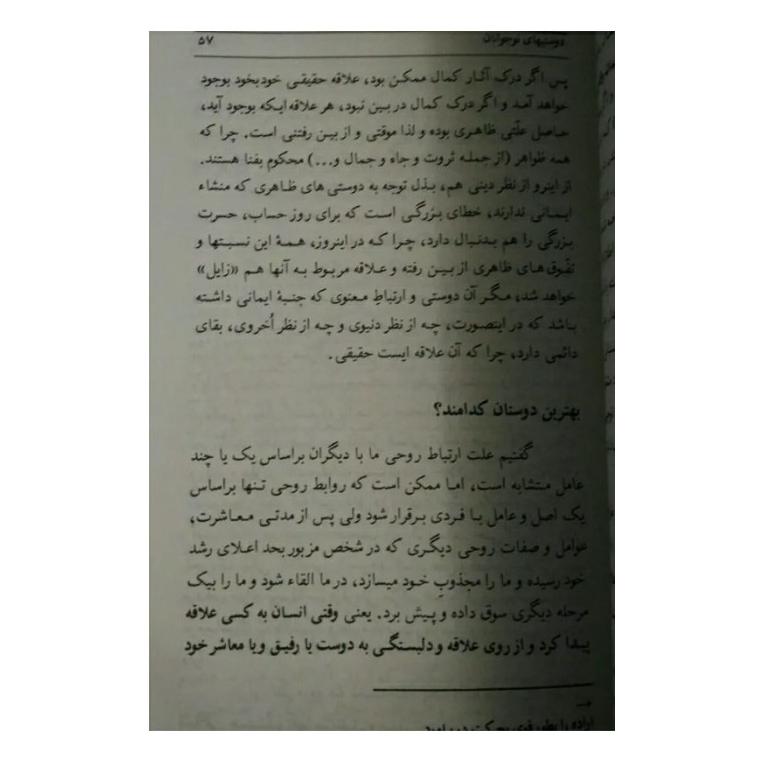 دوستیهای نوجوانان ۵۷
پس اگر درک آثار کمال ممکن بود، علاقه حقیقی خودبخود بوجود
خواهد آمد و اگر درک کمال در بین نبود، هر علاقه ایکه بوجود آید،
حاصل علّتی ظاهری بوده و لذا موقتی و از بین رفتنی است. چرا که
همه ظواهر (از جمله ثروت و جاه و جمال و...) محکوم بفنا هستند.
از اینرو از نظر دینی هم، بذل توجه به دوستی های ظاهری که منشاء
ایمانی ندارند، خطای بزرگی است که برای روز حساب، حسرت
بزرگی را هم بدنبال دارد، چرا که در اینروز، همۀ این نسبتها و
تفّوق های ظاهری از بین رفته و علاقه مربوط به آنها هم «زایل»
خواهد شد، مگر آن دوستی و ارتباطِ معنوی که جنبۀ ایمانی داشته
باشد که در اینصورت، چه از نظر دنیوی و چه از نظر اُخروی، بقای
دائمی دارد، چرا که آن علاقه ایست حقیقی.
بهترین دوستان کدامند؟
گفتیم علت ارتباط روحی ما با دیگران براساس یک یا چند
عامل متشابه است، اما ممکن است که روابط روحی تنها براساس
یک اصل و عامل با فردی برقرار شود ولی پس از مدتی معاشرت،
عوامل و صفات روحی دیگری که در شخص مزبور بحد اعلای رشد
خود رسیده و ما را مجذوبِ خود میسازد، در ما القاء شود و ما را بیک
مرحله دیگری سوق داده و پیش برد. یعنی وقتی انسان به کسی علاقه
پیدا کرد و از روی علاقه و دلبستگی به دوست یا رفیق ویا معاشر خود